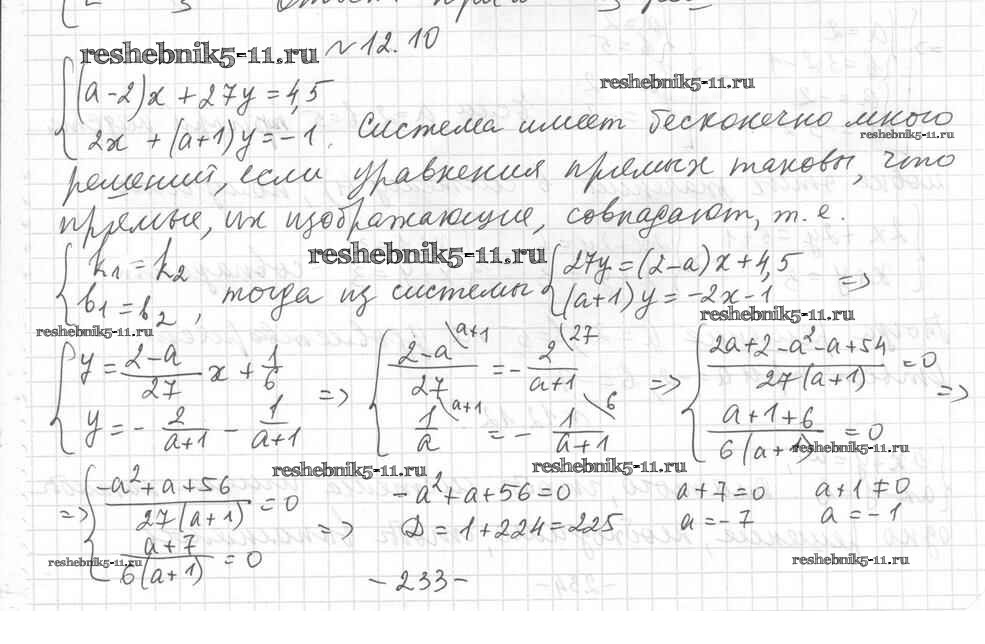 reshebnik5-11.ru №12.10
reshebnik5-11.ru
{(a-2)x + 27y = 4,5
{2x + (a+1)y = -1. Система имеет бесконечно много
reshebnik5-11.ru
решений, если уравнения прямых таковы, что
прямые, их изображающие, совпадают, т.е.
reshebnik5-11.ru
{k₁ = k₂
{b₁ = b₂, тогда из системы {27y = (2-a)x + 4,5
{(a+1)y = -2x - 1 =>
reshebnik5-11.ru
reshebnik5-11.ru
{y = (2-a)/27 x + 1/6
{y = - 2/(a+1) - 1/(a+1) =>
{(2-a)/27 \a+1 = - 2/(a+1) \27
{1/a \a+1 = - 1/(a+1) \6 =>
{(2a+2-a²-a+54)/(27(a+1)) = 0
{(a+1+6)/(6(a+1)) = 0 =>
reshebnik5-11.ru
reshebnik5-11.ru
reshebnik5-11.ru
=> {(-a²+a+56)/(27(a+1)) = 0
{(a+7)/(6(a+1)) = 0 =>
-a²+a+56=0 a+7=0 a+1≠0
D = 1+224=225 a=-7 a=-1
reshebnik5-11.ru
reshebnik5-11.ru
-233-